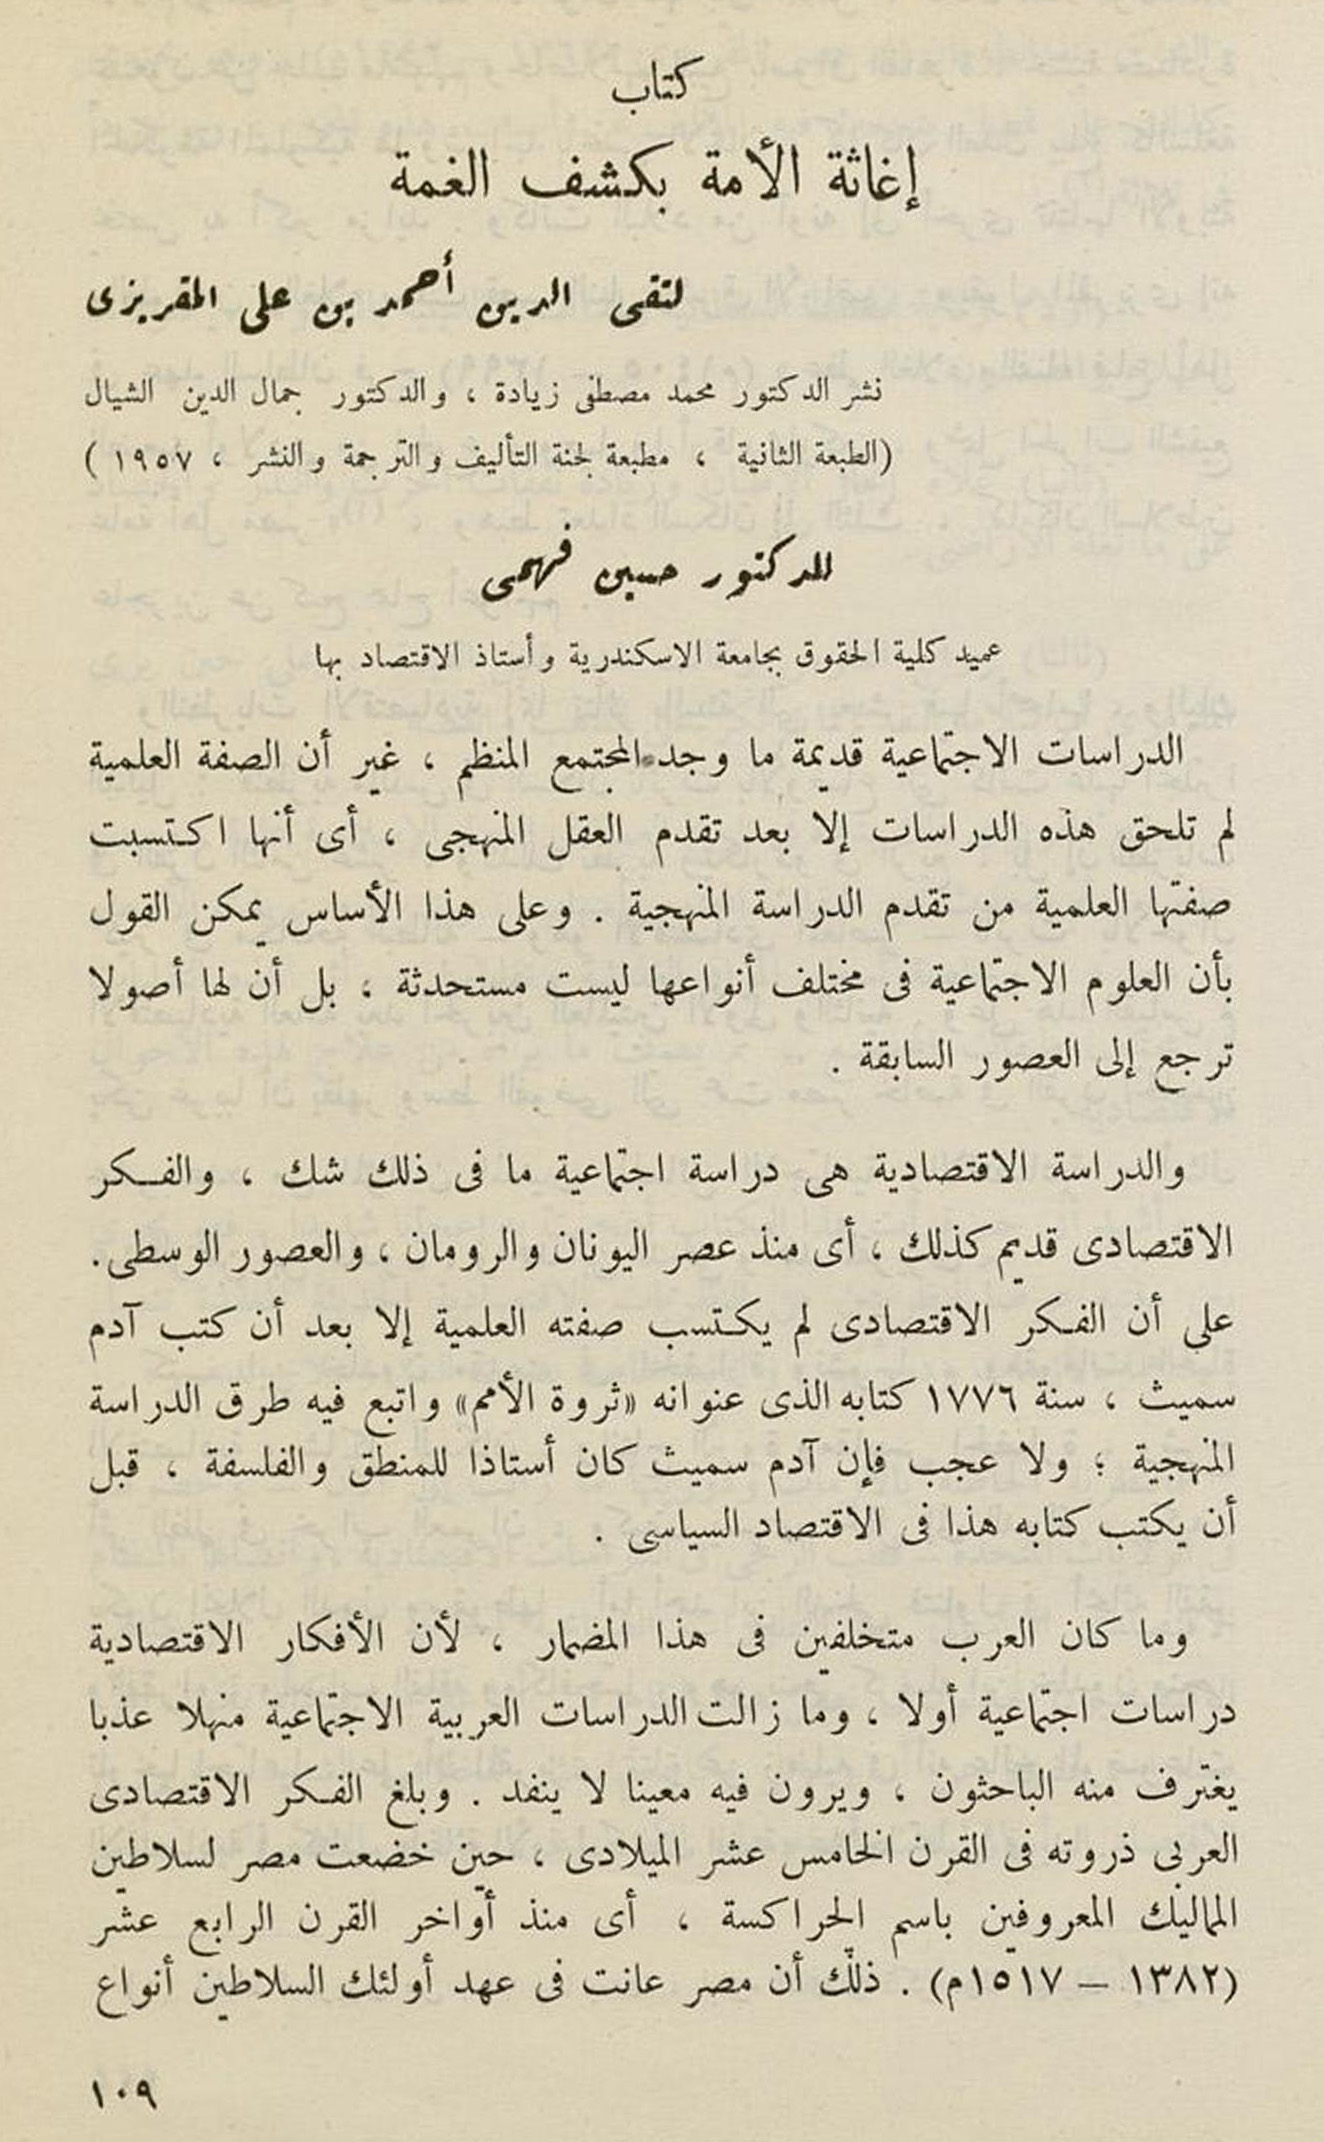 كتاب
إغاثة الأمة بكشف الغمة
لتقى الدين أحمد بن على المقريزى
نشر الدكتور محمد مصطفى زيادة ، والدكتور جمال الدين الشيال
(الطبعة الثانية ، مطبعة لجنة التأليف والترجمة والنشر ، ١٩٥٧ )
للدكتور حسين فهمى
عميد كلية الحقوق بجامعة الاسكندرية وأستاذ الاقتصاد بها
الدراسات الاجتماعية قديمة ما وجد المجتمع المنظم ، غير أن الصفة العلمية
لم تلحق هذه الدراسات إلا بعد تقدم العقل المنهجى ، أى أنها اكتسبت
صفتها العلمية من تقدم الدراسة المنهجية . وعلى هذا الأساس يمكن القول
بأن العلوم الاجتماعية فى مختلف أنواعها ليست مستحدثة ، بل أن لها أصولا
ترجع إلى العصور السابقة .
والدراسة الاقتصادية هى دراسة اجتماعية ما فى ذلك شك ، والفكر
الاقتصادى قديم كذلك ، أى منذ عصر اليونان والرومان ، والعصور الوسطى.
على أن الفكر الاقتصادى لم يكتسب صفته العلمية إلا بعد أن كتب آدم
سميث ، سنة ١٧٧٦ كتابه الذى عنوانه «ثروة الأمم» واتبع فيه طرق الدراسة
المنهجية ؛ ولا عجب فإن آدم سميث كان أستاذا للمنطق والفلسفة ، قبل
أن يكتب كتابه هذا فى الاقتصاد السياسى .
وما كان العرب متخلفين فى هذا المضمار ، لأن الأفكار الاقتصادية
دراسات اجتماعية أولا ، وما زالت الدراسات العربية الاجتماعية منهلا عذبا
يغترف منه الباحثون ، ويرون فيه معينا لا ينفد . وبلغ الفكر الاقتصادى
العربى ذروته فى القرن الخامس عشر الميلادى ، حين خضعت مصر لسلاطين
المماليك المعروفين باسم الجراكسة ، أى منذ أواخر القرن الرابع عشر
(١٣٨٢ – ١٥١٧م) . ذلك أن مصر عانت فى عهد أولئك السلاطين أنواع
١٠٩